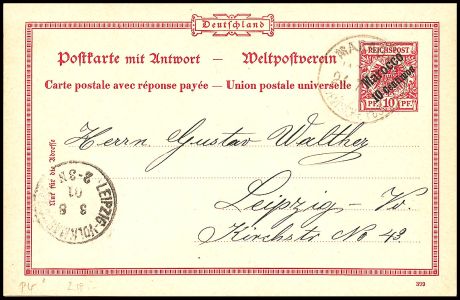 Deutschland
Postkarte mit Antwort — Weltpostverein
Carte postale avec réponse payée — Union postale universelle
REICHSPOST
Marocco
10 Centimos
PF. 10 PF.
Nur für die Adresse
Herrn Gustav Walther
Leipzig - Vo.
Kirchstr. No 43.
LEIPZIG-VOLKM
3 8
01
2-3N